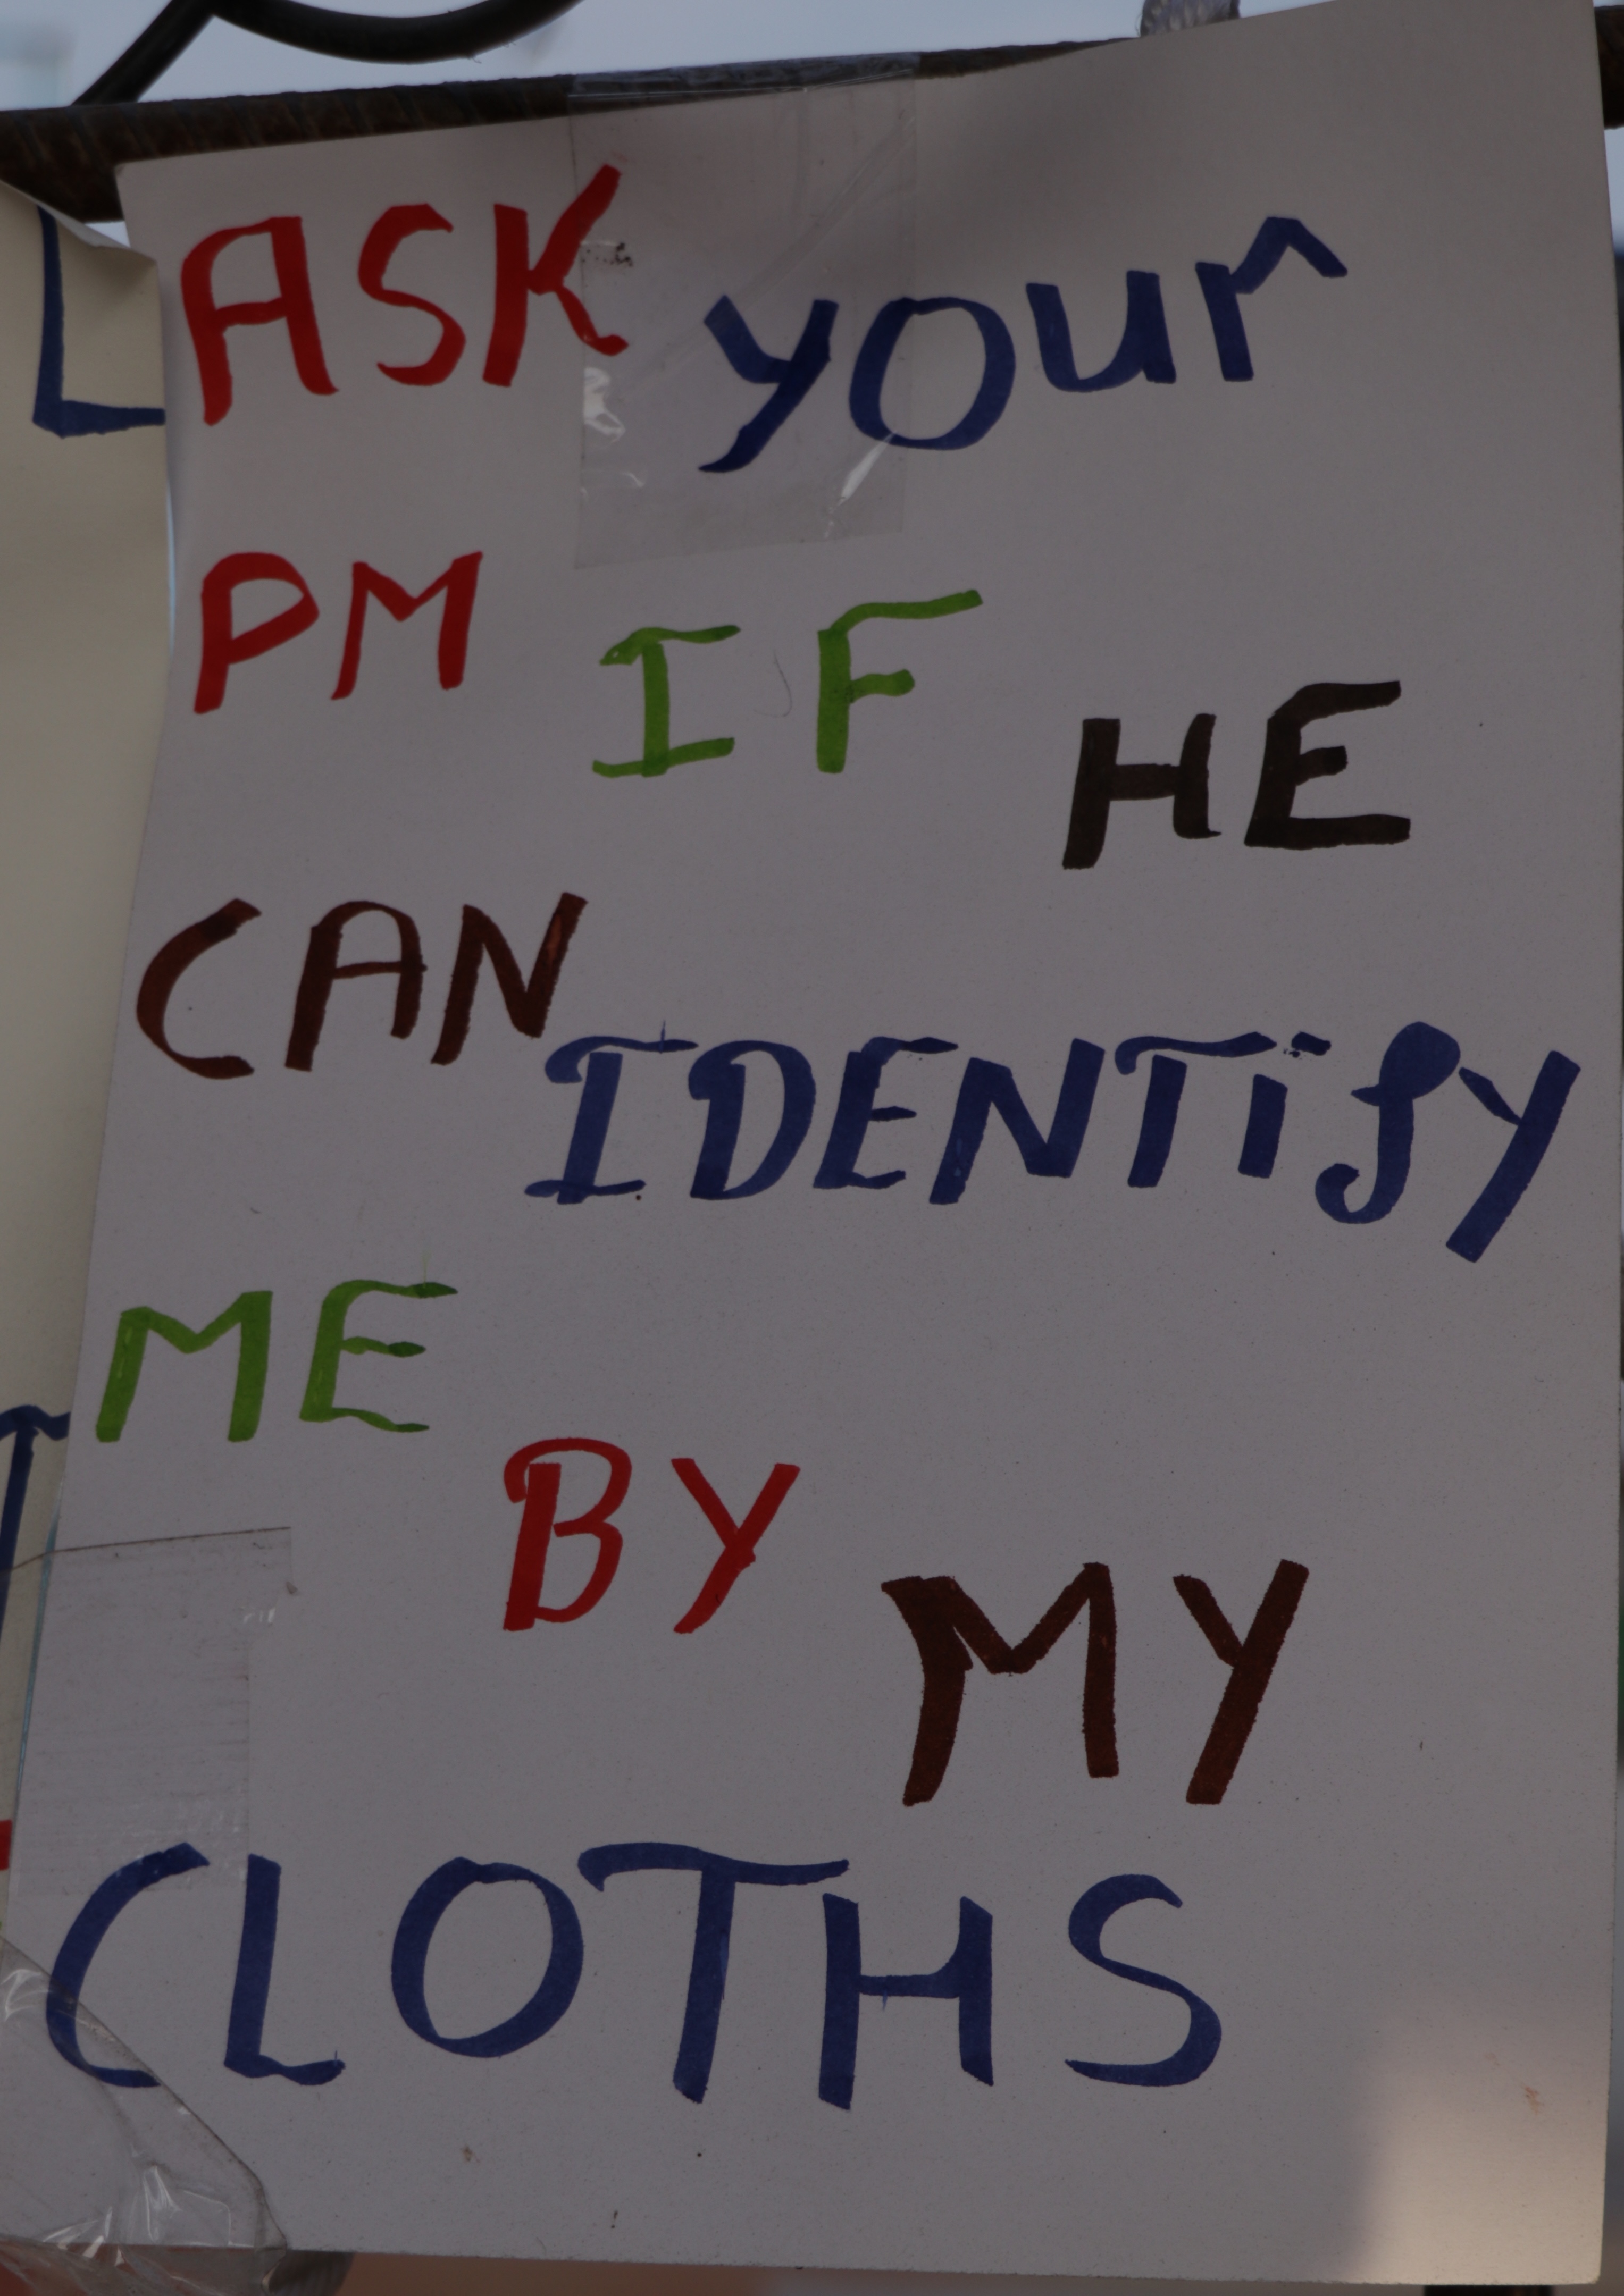 ASK your
PM IF HE
CAN IDENTify
ME BY MY
CLOTHS